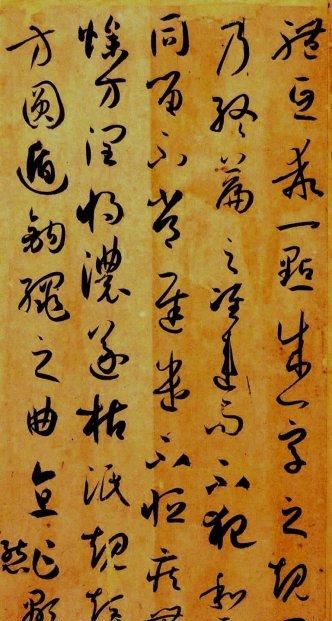 體互乖一點成一字之規
乃終篇之準違而不犯和
同留不常遲遣不恒疾
燥方潤將濃遂枯泯規矩
方圓遁鉤繩之曲直乍顯